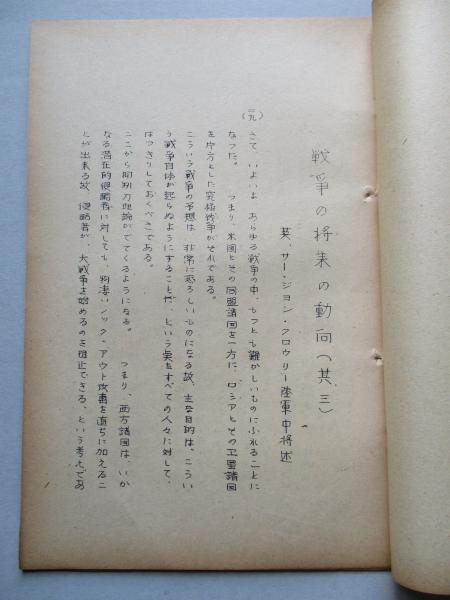 戦争の将来の動向(其、三)
英、サー・ジョン・クロウリー陸軍中将述
(二九)
さて、いよいよ、あらゆる戦争の中、もっとも難かしいものにふれることに
なった。 つまり、米国とその同盟諸国を一方に、ロシアとその卫星諸国
を片方とした究極戦争がそれである。
こういう戦争の予想は、非常に恐ろしいものになる故、主な目的は、こうい
う戦争自体が起らぬようにすることだ、という実をすべての人々に対して、
はっきりしておくべきである。
ここから抑制力理論がでてくるようになる。 つまり、西方諸国は、いか
なる潜在的侵略者に対しても、物凄いノック・アウト攻書を直ちに加えるこ
とが出来る故、侵略者が、大戦争を始めるのを阻止できる、という考えであ